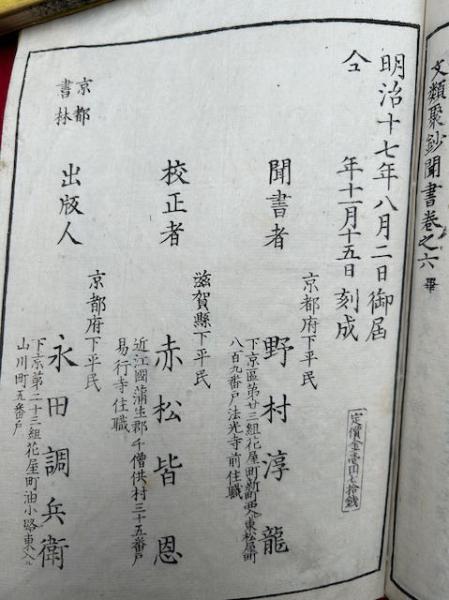 文類聚鈔聞書卷之六 畢
明治十七年八月二日御届
仝 年十一月十五日刻成
定價金壱円七拾銭
聞書者
京都府下平民
下京區第廿三組花屋町新町西入東松屋町
八百九番戸法光寺前住職
野村淳龍
校正者
滋賀縣下平民
近江國蒲生郡千僧供村三十五番戸
易行寺住職
赤松皆恩
京都
書林
出版人
京都府下平民
下京第二十三組花屋町油小路東入ル
山川町五番戸
永田調兵衛